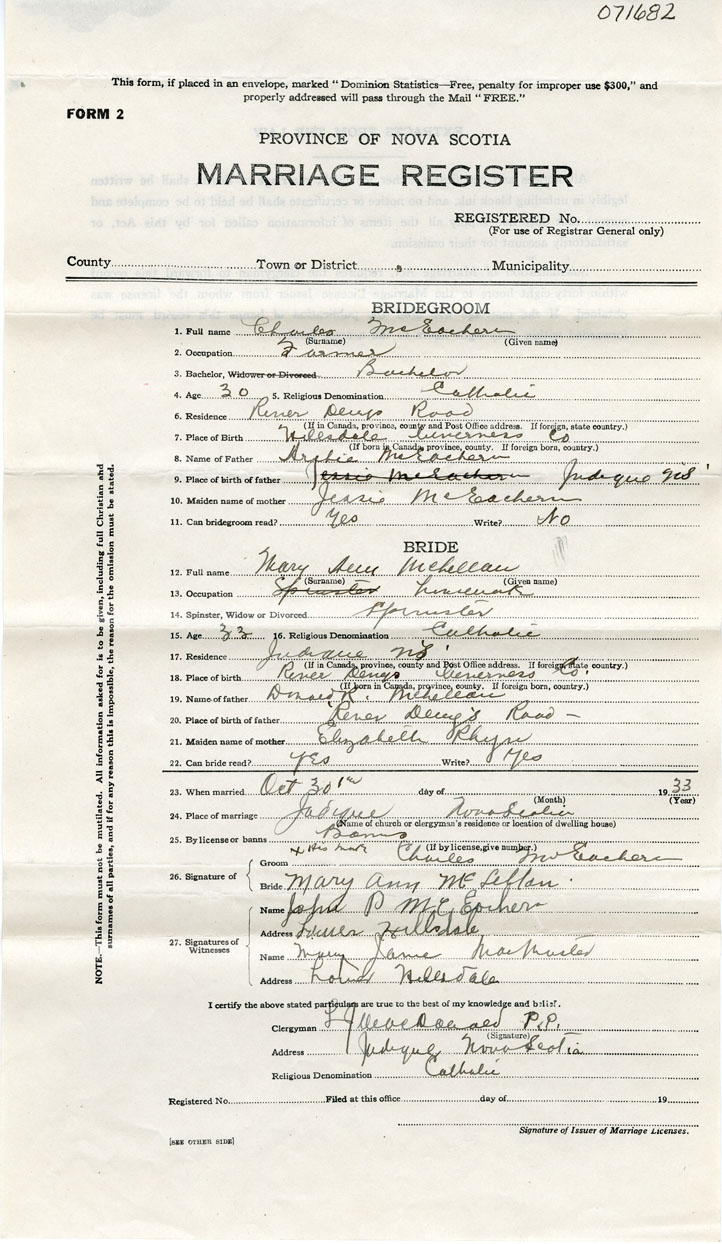 071682
This form, if placed in an envelope, marked "Dominion Statistics—Free, penalty for improper use $300," and
properly addressed will pass through the Mail "FREE."
FORM 2
PROVINCE OF NOVA SCOTIA
MARRIAGE REGISTER
REGISTERED No.
(For use of Registrar General only)
County Town or District Municipality
BRIDEGROOM
1. Full name Charles McEachern
(Surname) (Given name)
2. Occupation Farmer
3. Bachelor, Widower or Divorced Bachelor
4. Age 30 5. Religious Denomination Catholic
6. Residence River Denys Road
(If in Canada, province, county and Post Office address. If foreign, state country.)
7. Place of Birth Hillsdale Inverness Co
(If born in Canada, province, county. If foreign born, country.)
8. Name of Father Archie McEachern
9. Place of birth of father Jessie McEachern Judique NS
10. Maiden name of mother Jessie McEachern
11. Can bridegroom read? Yes Write? No
BRIDE
12. Full name Mary Ann McLellan
(Surname) (Given name)
13. Occupation Spinster housework
14. Spinster, Widow or Divorced Spinster
15. Age 33 16. Religious Denomination Catholic
17. Residence Judique NS
(If in Canada, province, county and Post Office address. If foreign, state country.)
18. Place of birth River Denys Inverness Co.
(If born in Canada, province, county. If foreign born, country.)
19. Name of father Donald R. McLellan
20. Place of birth of father River Deny's Road —
21. Maiden name of mother Elizabeth Rhyn
22. Can bride read? Yes Write? Yes
23. When married Oct 30th day of 1933
(Month) (Year)
24. Place of marriage Judique Nova Scotia
(Name of church or clergyman's residence or location of dwelling house)
25. By license or banns Banns
(If by license, give number.)
x His mark
Groom Charles McEachern
26. Signature of
Bride Mary Ann McLellan
Name John P McEachern
Address Lower Hillsdale
27. Signatures of Witnesses
Name Mary Jane MacMaster
Address Lower Hillsdale
I certify the above stated particulars are true to the best of my knowledge and belief.
Clergyman MacDonald P.P.
(Signature)
Address Judique Nova Scotia
Religious Denomination Catholic
Registered No. Filed at this office day of 19
Signature of Issuer of Marriage Licenses.
[SEE OTHER SIDE]
NOTE.—This form must not be mutilated. All information asked for is to be given, including full Christian and
surnames of all parties, and if for any reason this is impossible, the reason for the omission must be stated.